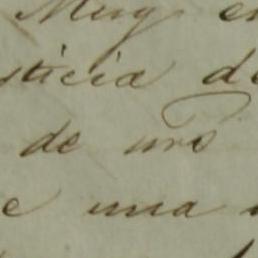 Muy en
sticia de
de uno
e una